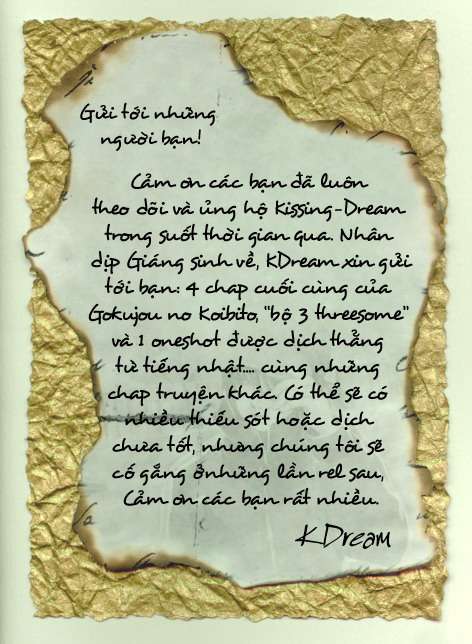 Gửi tới những
người bạn!
Cảm ơn các bạn đã luôn
theo dõi và ủng hộ Kissing-Dream
trong suốt thời gian qua. Nhân
dịp Giáng sinh về, KDream xin gửi
tới bạn: 4 chap cuối cùng của
Gokujou no Koibito, "bộ 3 threesome"
và 1 oneshot được dịch thẳng
từ tiếng nhật.... cùng những
chap truyện khác. Có thể sẽ có
nhiều thiếu sót hoặc dịch
chưa tốt, nhưng chúng tôi sẽ
cố gắng ởnhững lần rel sau,
Cảm ơn các bạn rất nhiều.
KDream